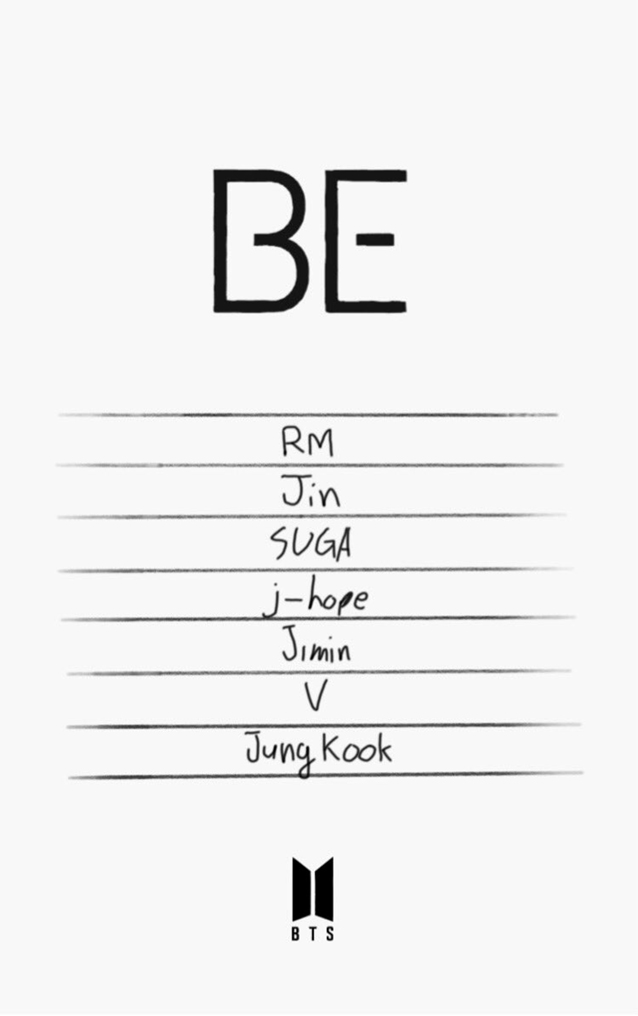 BE
RM
Jin
SUGA
j-hope
Jimin
V
Jung Kook
BTS